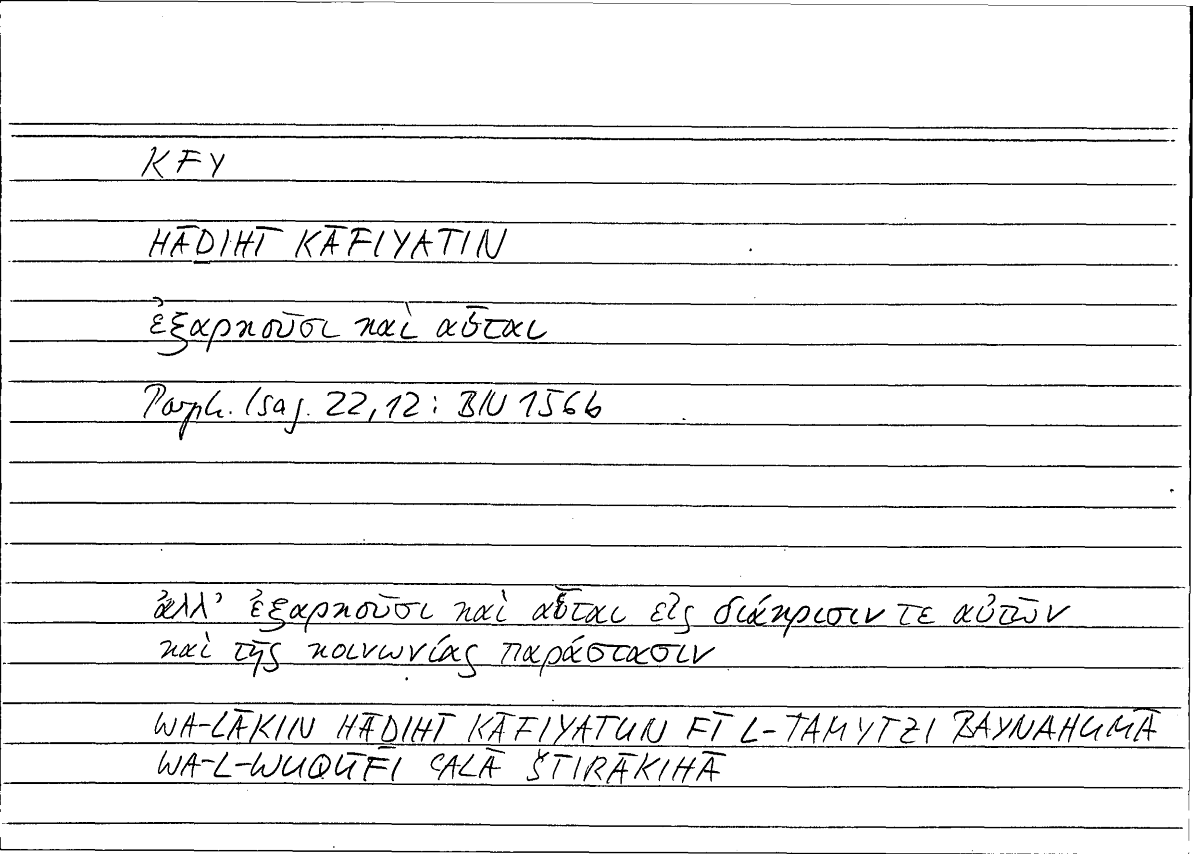 KFY
HĀḎIHĪ KĀFIYATIN
ἐξαρκοῦσι καὶ αὗται
Porph. Isag. 22,12: BN 156b
ἀλλ’ ἐξαρκοῦσι καὶ αὗται εἰς διάκρισιν τε αὐτῶν
καὶ τῆς κοινωνίας παράστασιν
WA-LĀKIN HĀḎIHĪ KĀFIYATUN FĪ L-TAMYĪZI BAYNAHUMĀ
WA-L-WUQŪFI ʿALĀ ŠTIRĀKIHĀ